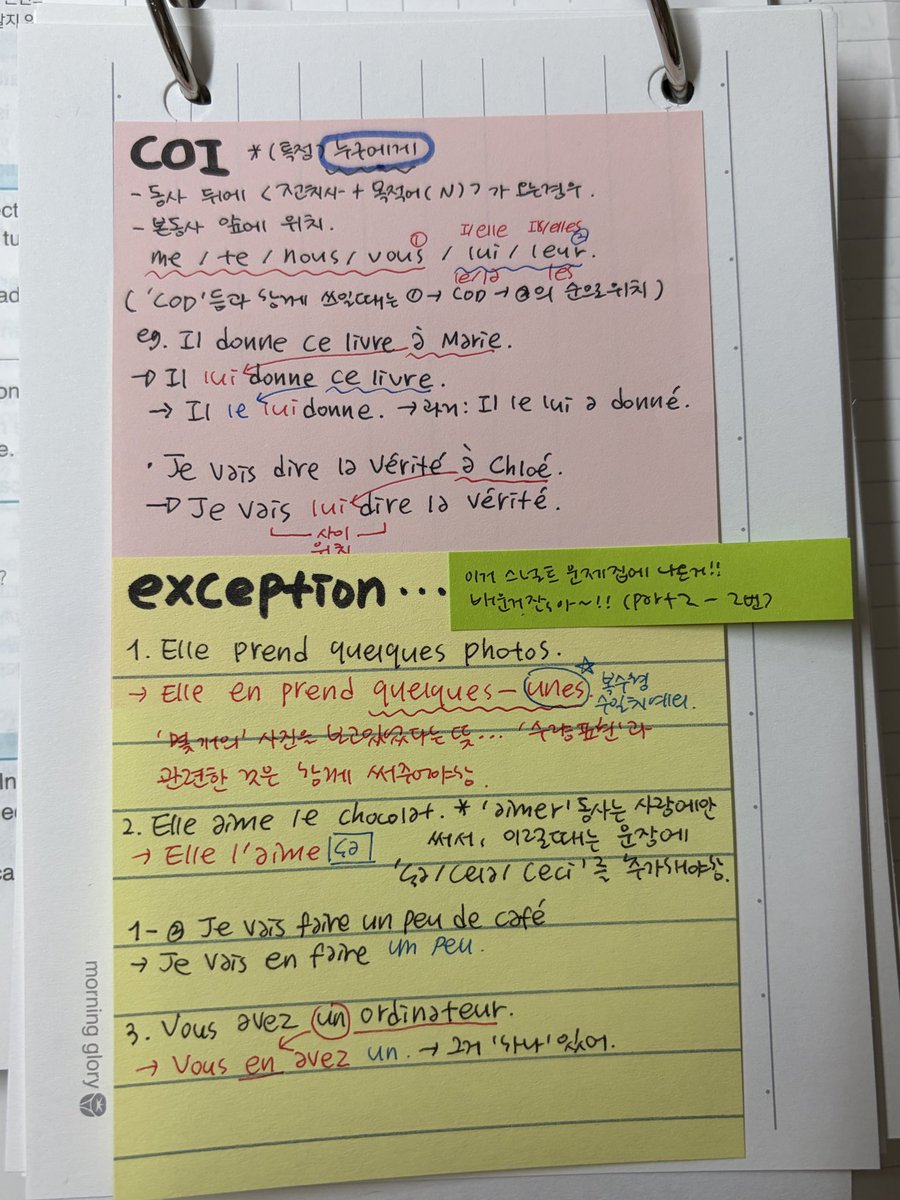 COI *(특정) 누구에게
- 동사 뒤에 <전치사 + 목적어(N)>가 오는경우.
- 본동사 앞에 위치.
il/elle ils/elles
me / te / nous / vous ① / lui / leur. ②
le/la les
('COD'들과 함께 쓰일때는 ①→ COD → ②의 순으로위치)
eg. Il donne ce livre à Marie.
→ Il lui donne ce livre.
→ Il le lui donne. → 과거: Il le lui a donné.
· Je vais dire la vérité à Chloé.
→ Je vais lui dire la vérité.
사이
위치
exception...
이거 스널트 문제집에 나온거!!
배운거잖아~!! (part2 - 2번)
1. Elle prend quelques photos.
→ Elle en prend quelques-unes. ☆ 복수형
수일치예외.
'몇개의' 사진을 보고있었다는 뜻... '수량표현'과
관련한 것은 함께 써주어야함.
2. Elle aime le chocolat. * 'aimer'동사는 사랑에만
→ Elle l'aime ça 써서, 이럴때는 문장에
'ça/cela/ceci'를 추가해야함.
1-② Je vais faire un peu de café
→ Je vais en faire un peu.
3. Vous avez un ordinateur.
→ Vous en avez un. → 그거 '하나' 있어.
morning glory